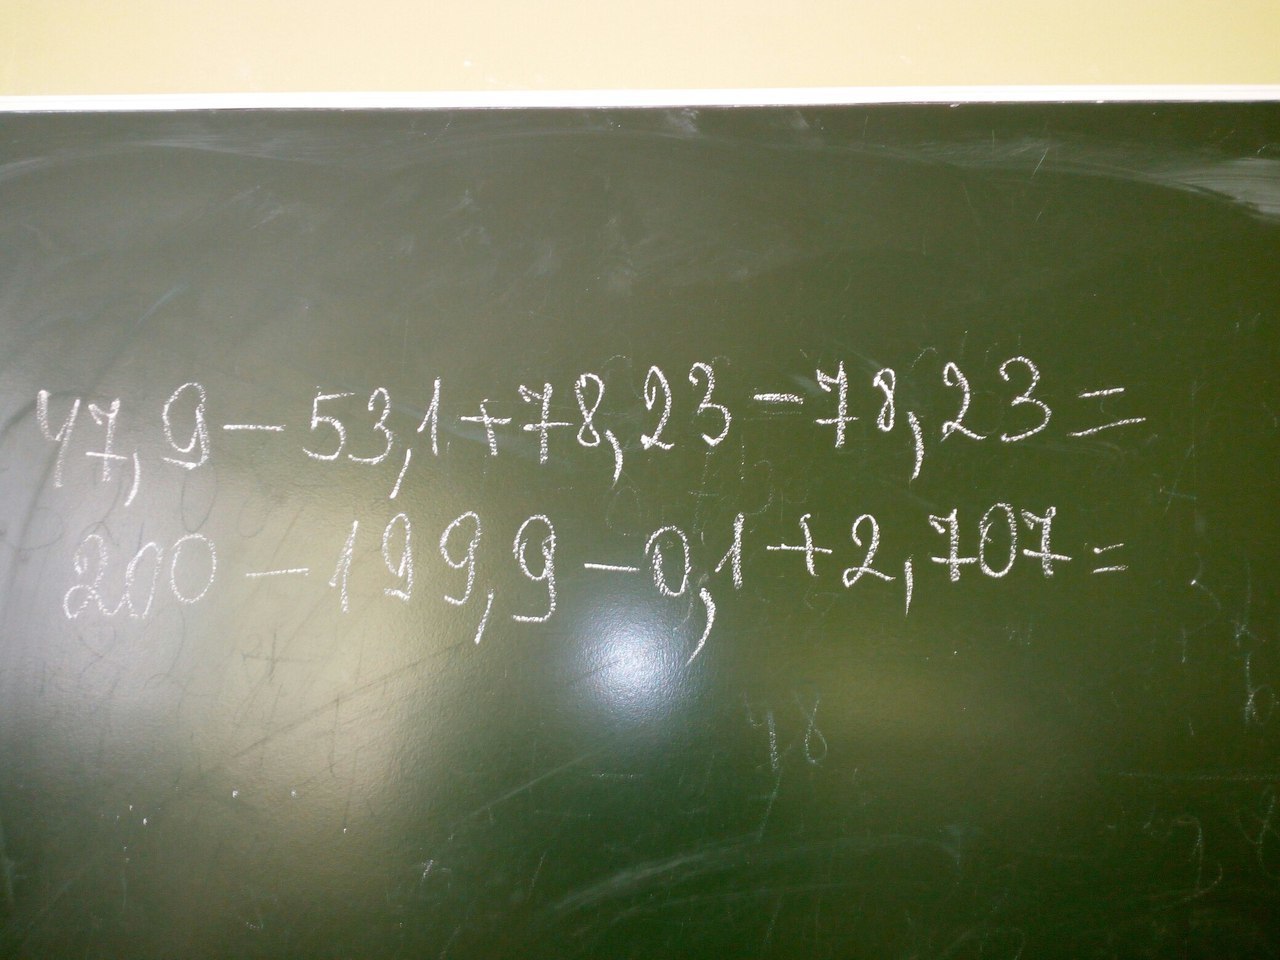 47,9-53,1+78,23-78,23=
200-199,9-0,1+2,707=
48